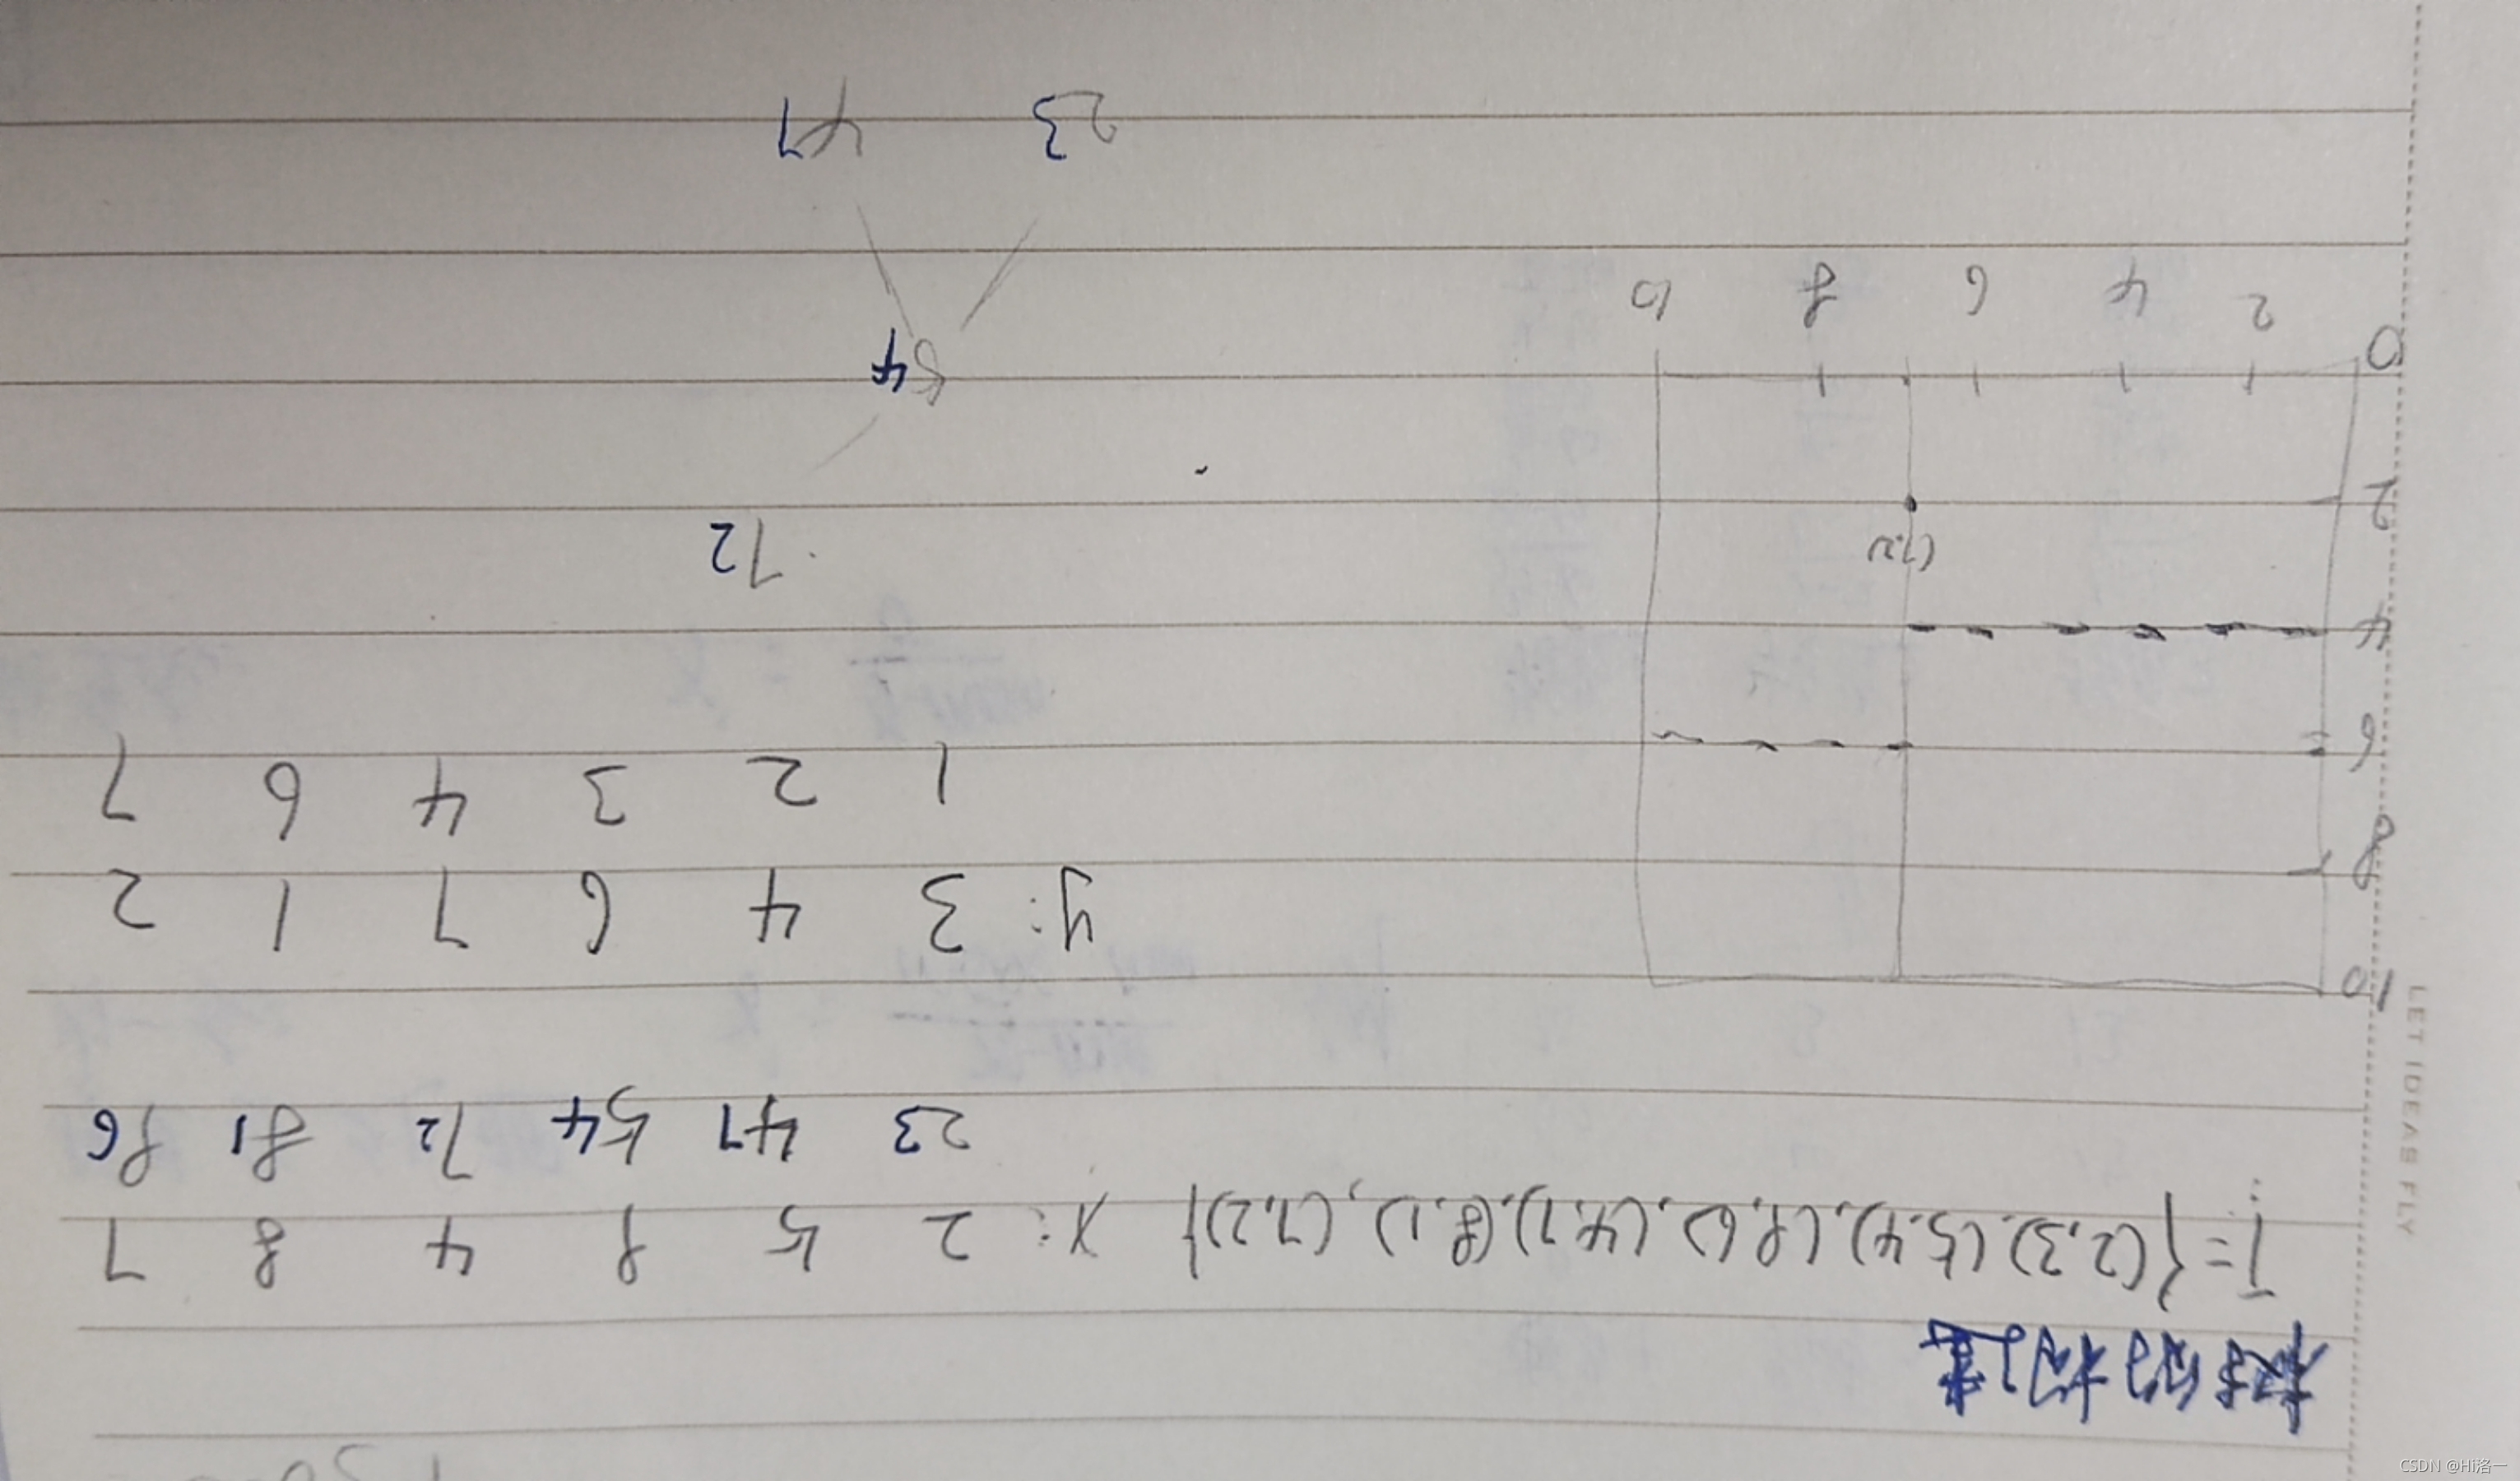 树的构建
T={(2,3),(5,4),(9,6),(4,7),(8,1),(7,2)}
x: 2 5 9 4 8 7
23 47 54 72 81 96
y: 3 4 6 7 1 2
1 2 3 4 6 7
10
8
6
4
(7,2)
2
0
2 4 6 8 10
72
54
23 47
LET IDEAS FLY
CSDN @Hi洛一